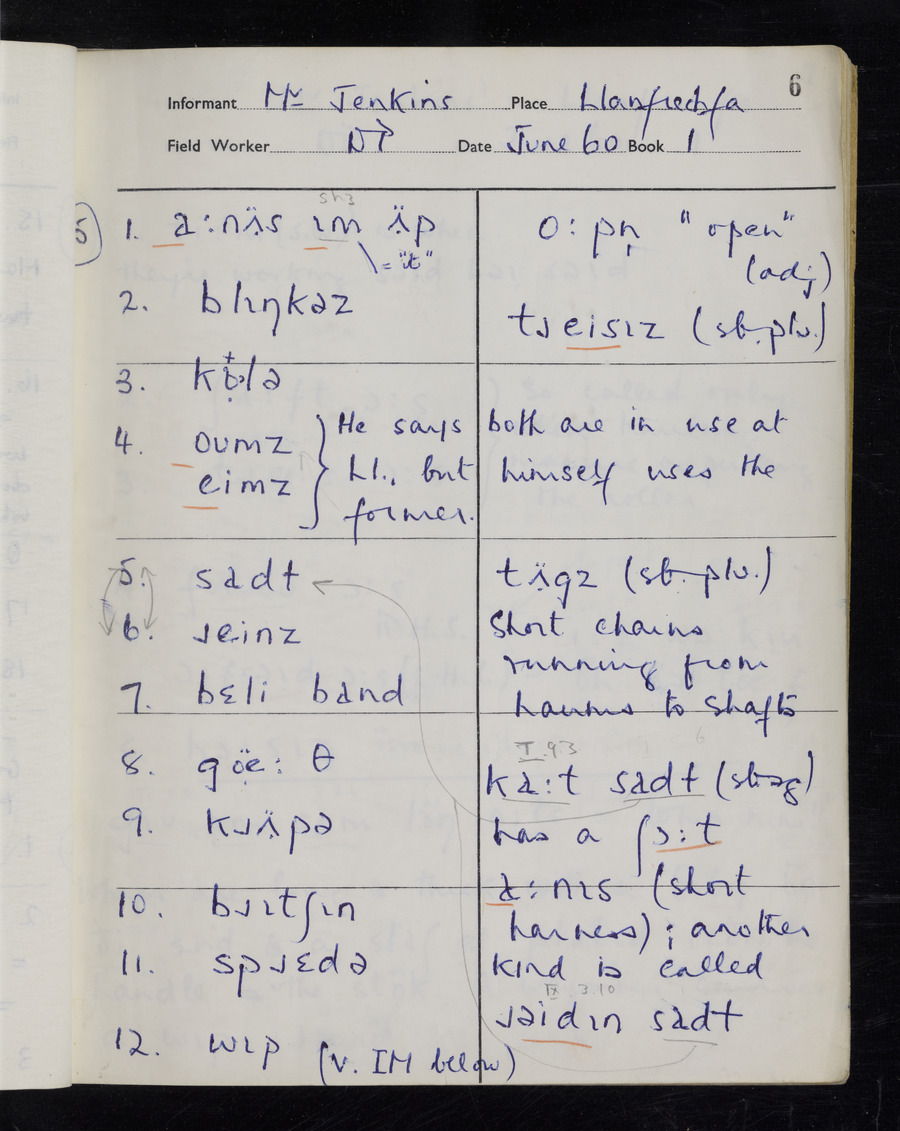 6
Informant Mr Jenkins Place Llanfrechfa
Field Worker DP Date June 60 Book 1
5
1. a:nïs ɪm ïp
= "it"
2. blɪŋkəz
4. oʊmz
eimz
He says both are in use at
Ll., but himself uses the
former.
5. sadt
6. ɹeinz
7. bɛli band
8. göe: θ
9. kɹïpə
10. bɹɪtʃɪn
11. spɹɛdə
12. wɪp (v. IM below)
o:pn̩ "open"
(adj)
tɹeisɪz (sb. plu.)
tïgz (sb. plu.)
short chains
running from
haums to shafts
I.9.3
ka:t sadt (sb sg)
has a ʃɔ:t
a:nɪs (short
harness); another
kind is called
IX 3.10
ɹəidɪn sadt